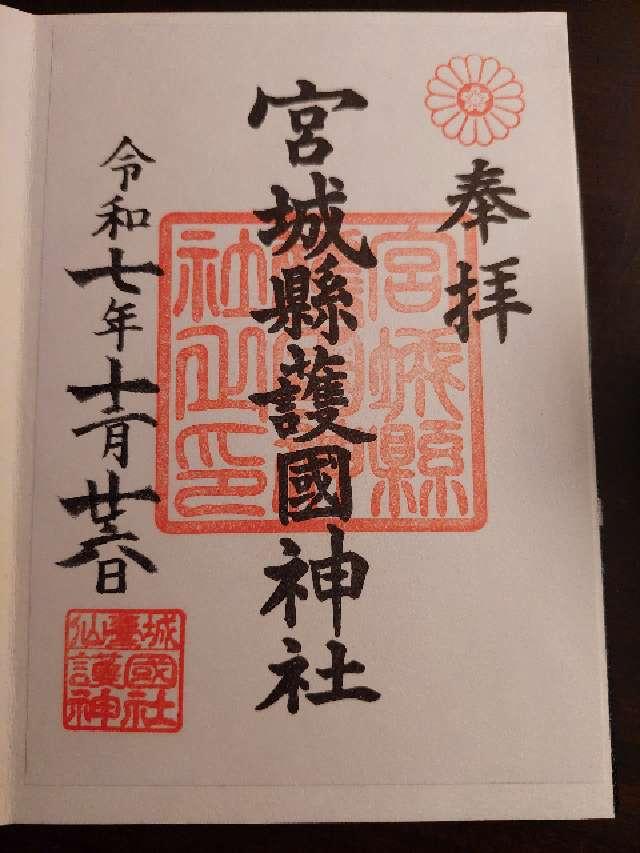 奉拝
宮城縣護國神社
宮城縣
護國神
社之印
令和七年十二月廿六日
仙臺城
護國
神社